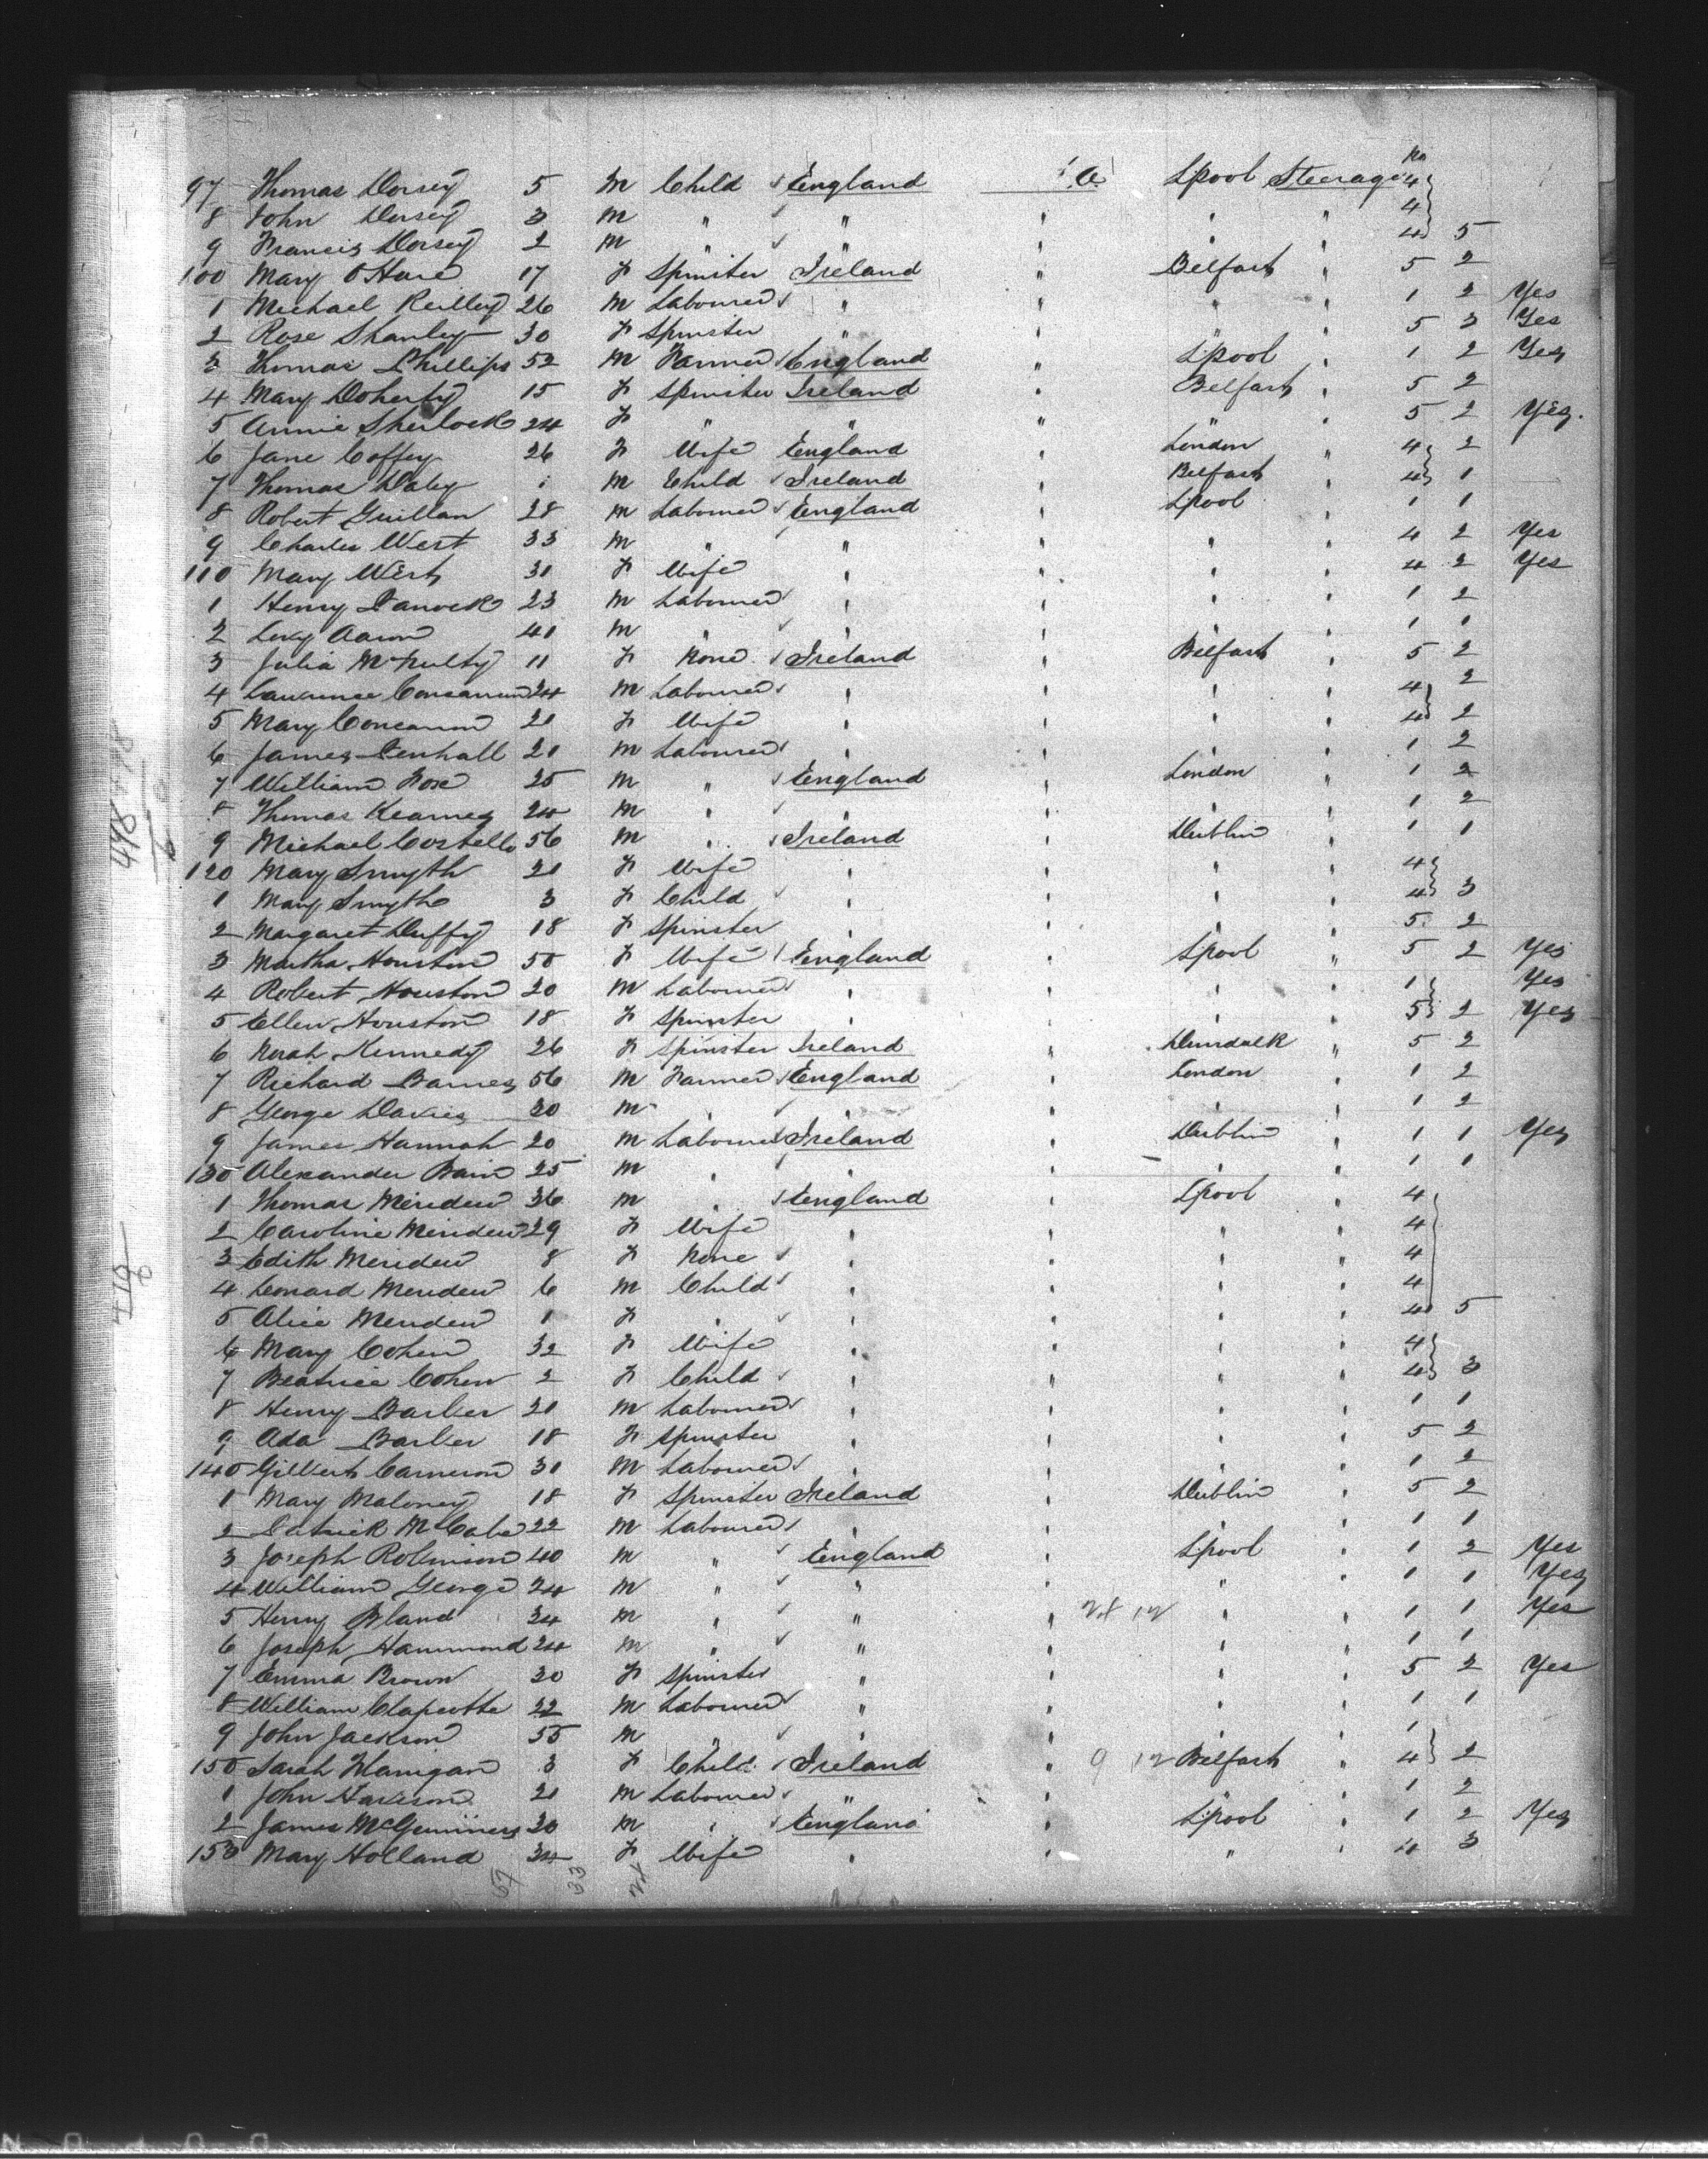 No
97 Thomas Dorsey 5 M Child England a Lpool Steerage 4
8 John Dorsey 3 M " " " " 4
9 Francis Dorsey 2 M " " " " 4 5
100 Mary O'Hare 17 F Spinster Ireland " Belfast " 5 2
1 Michael Reilley 26 M Labourer " " " " 1 2 Yes
2 Rose Shanley 30 F Spinster " " " " 5 3 Yes
3 Thomas Phillips 52 M Farmer England " Lpool " 1 2 Yes
4 Mary Doherty 15 F Spinster Ireland " Belfast " 5 2
5 Annie Sherlock 24 F " " " " " 5 2 Yes.
6 Jane Coffey 26 F Wife England " London " 4 2
7 Thomas Daley 1 M Child Ireland " Belfast " 4 1
8 Robert Guillan 28 M Labourer England " Lpool " 1 1
9 Charles West 33 M " " " " " 4 2 Yes
110 Mary West 31 F Wife " " " " 4 2 Yes
1 Henry 23 M Labourer " " " " 1 2
2 Levy Aaron 41 M " " " " " 1 1
3 Julia McNulty 11 F None Ireland " Belfast " 5 2
4 Laurence 24 M Labourer " " " " 4 2
5 Mary Concannon 21 F Wife " " " " 4 2
6 James Penhall 21 M Labourer " " " " 1 2
7 William Fox 25 M " England " London " 1 2
8 Thomas Kearney 24 M " " " " " 1 2
9 Michael Costello 56 M " Ireland " Dublin " 1 1
120 Mary Smyth 21 F Wife " " " " 4
1 Mary Smyth 3 F Child " " " " 4 3
2 Margaret Duffy 18 F Spinster " " " " 5 2
3 Martha Houston 50 F Wife England " Lpool " 5 2 Yes
4 Robert Houston 20 M Labourer " " " " 1 Yes
5 Ellen Houston 18 F Spinster " " " " 5 2 Yes
6 Norah Kennedy 26 F Spinster Ireland " Dundalk " 5 2
7 Richard Barnes 56 M Farmer England " London " 1 2
8 George Davies 30 M " " " " " 1 2
9 James Hannah 20 M Labourer Ireland " Dublin " 1 1 Yes
130 Alexander Bain 25 M " " " " " 1 1
1 Thomas Meridew 36 M " England " Lpool " 4
2 Caroline Meridew 29 F Wife " " " " 4
3 Edith Meridew 8 F None " " " " 4
4 Leonard Meridew 6 M Child " " " " 4
5 Alice Meridew 1 F " " " " " 4 5
6 Mary Cohen 32 F Wife " " " " 4
7 Beatrice Cohen 2 F Child " " " " 4 3
8 Henry Barber 21 M Labourer " " " " 1 1
9 Ada Barber 18 F Spinster " " " " 5 2
140 Gilbert Cameron 31 M Labourer " " " " 1 2
1 Mary Maloney 18 F Spinster Ireland " Dublin " 5 2
2 Patrick McCabe 22 M Labourer " " " " 1 1
3 Joseph Robinson 40 M " England " Lpool " 1 2 Yes
4 William George 24 M " " " " " 1 1 Yes
5 Henry Bland 34 M " " " 24 12 " " 1 1 Yes
6 Joseph Hammond 24 M " " " " " 1 1
7 Emma Brown 30 F Spinster " " " " 5 2 Yes
8 William Clapcotte 22 M Labourer " " " " 1 1
9 John Jackson 55 M " " " " " 1
150 Sarah Flanigan 3 F Child Ireland " 9 12 Belfast " 4 2
1 John Harrison 21 M Labourer " " " " 1 2
2 James McGuinness 30 M " England " Lpool " 1 2 Yes
153 Mary Holland 34 F Wife " " " " 4 3
57 33 24